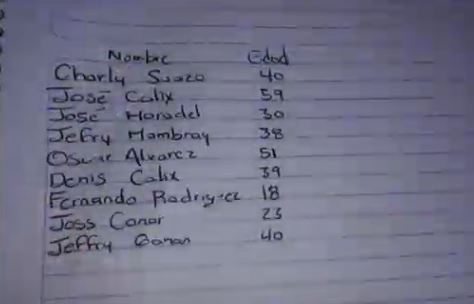 Nombre Edad
Charly Suazo 40
José Calix 59
José Haradel 30
Jefry Mambray 38
Oscar Alvarez 51
Denis Calix 39
Fernando Rodriguez 18
Joss Canar 23
Jeffry 40